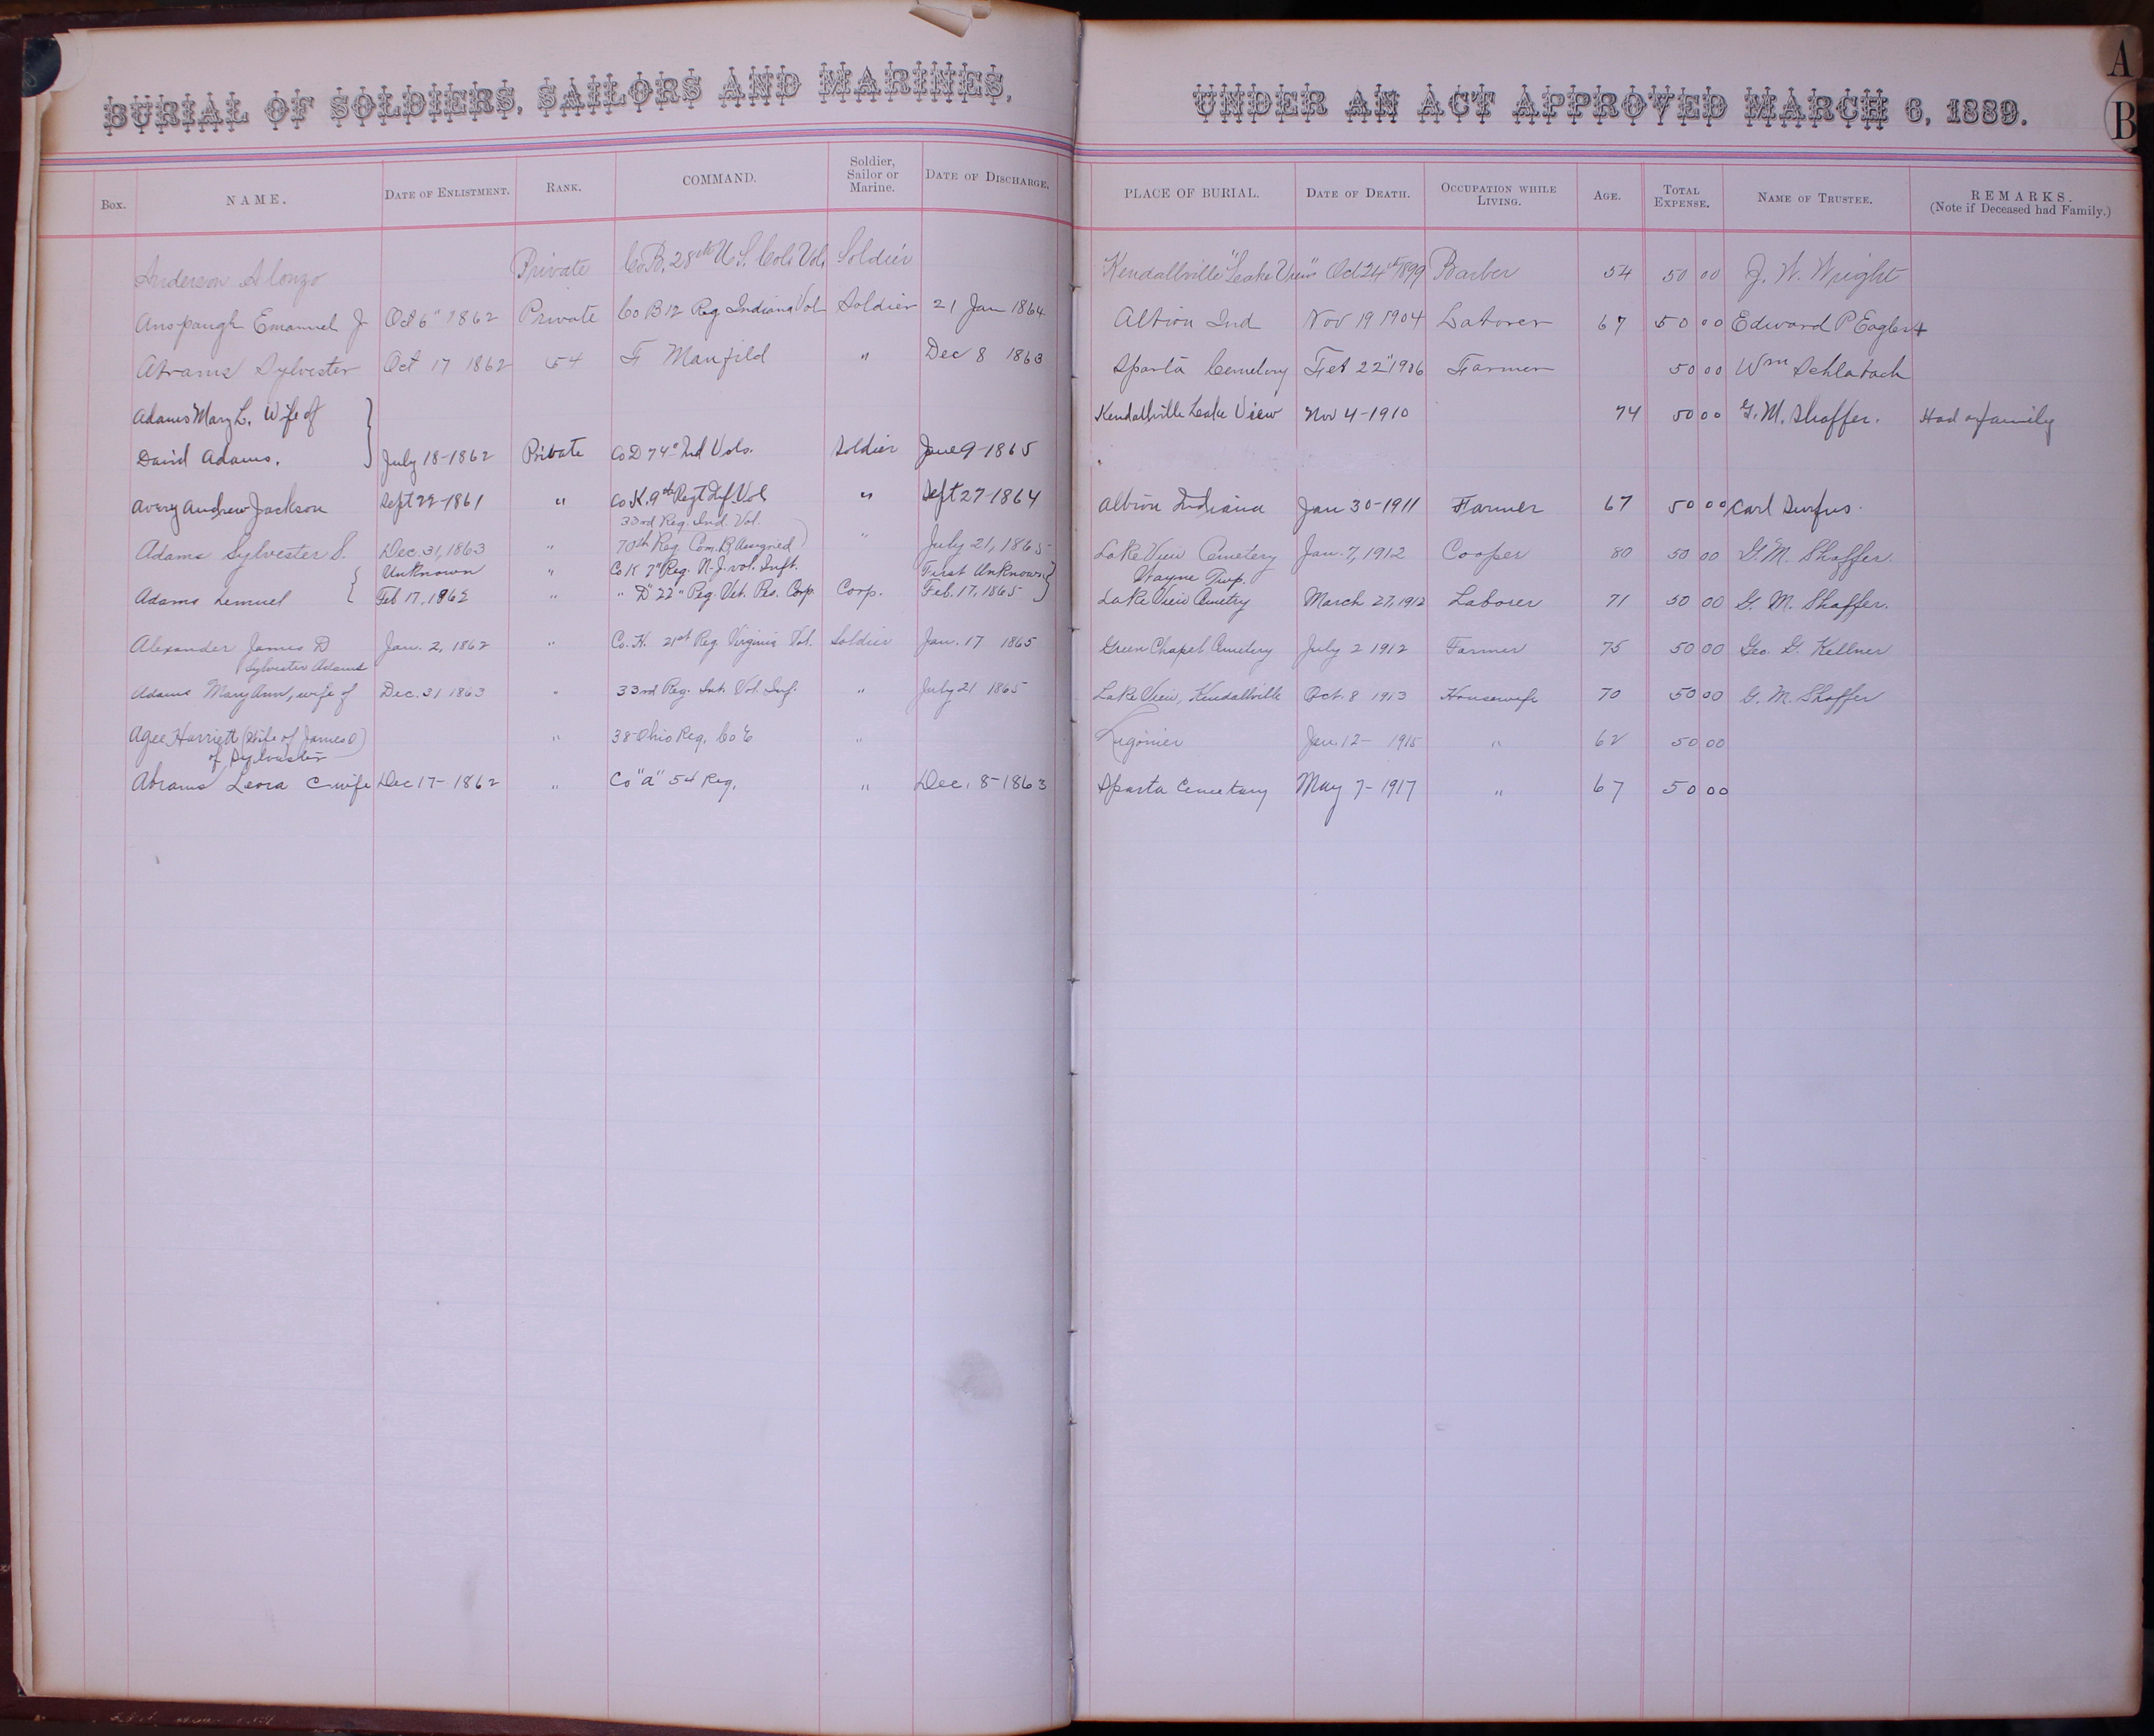 BURIAL OF SOLDIERS, SAILORS AND MARINES, UNDER AN ACT APPROVED MARCH 6, 1889.
A
B
Box. NAME. DATE OF ENLISTMENT. RANK. COMMAND. Soldier, Sailor or Marine. DATE OF DISCHARGE. PLACE OF BURIAL. DATE OF DEATH. OCCUPATION WHILE LIVING. AGE. TOTAL EXPENSE. NAME OF TRUSTEE. REMARKS. (Note if Deceased had Family.)
Anderson Alonzo Private Co. B. 28th U.S. Col. Vols Soldier Kendallville "Lake View" Oct 24th 1899 Barber 54 50 00 J. W. Wright
Anspaugh Emanuel J Oct 6" 1862 Private Co B 12 Reg Indiana Vol Soldier 21 Jan 1864 Albion Ind Nov 19 1904 Laborer 67 50 00 Edward P Eagles
Abrams Sylvester Oct 17 1862 54 F Manfild " Dec 8 1863 Sparta Cemetery Feb 22" 1906 Farmer 50 00 Wm Schlabach
Adams Mary L. Wife of Kendallville Lake View Nov 4-1910 74 50 00 G. M. Shaffer. Had a family
David Adams. July 18-1862 Private Co D 74" Ind Vols. Soldier June 9-1865
Avery Andrew Jackson Sept 22-1861 " Co K. 9th Regt Inf. Vol " Sept 27-1864 Albion Indiana Jan 30-1911 Farmer 67 50 00 Carl Surfus.
33rd Reg. Ind. Vol.
Adams Sylvester S. Dec. 31, 1863 " 70th Reg. Com. B, Assigned " July 21, 1865 Lake View Cemetery Jan. 7, 1912 Cooper 80 50 00 G. M. Shaffer.
Unknown " Co K 7" Reg. N. J. vol. Inft. First Unknown Wayne Twp.
Adams Lemuel Feb 17, 1862 " " D" 22" Reg. Vet. Res. Corp. Corp. Feb. 17, 1865 Lake View Cemetry March 27, 1912 Laborer 71 50 00 G. M. Shaffer.
Alexander James D Jan. 2, 1862 " Co. K. 21st Reg. Virginia Vol. Soldier Jan. 17 1865 Green Chapel Cemetery July 2 1912 Farmer 75 50 00 Geo. G. Kellner
Sylvester Adams
Adams Mary Ann, wife of Dec. 31 1863 " 33rd Reg. Ind. Vol. Inf. " July 21 1865 Lake View, Kendallville Oct. 8 1913 Housewife 70 50 00 G. M. Shaffer
Agee Harriett (Wife of James O) " 38-Ohio Reg. Co E " Ligonier Jan. 12- 1915 " 62 50 00
of Sylvester
Abrams Leora C wife Dec 17- 1862 " Co "A" 54 Reg. " Dec. 8-1863 Sparta Cemetary May 7-1917 " 67 50 00